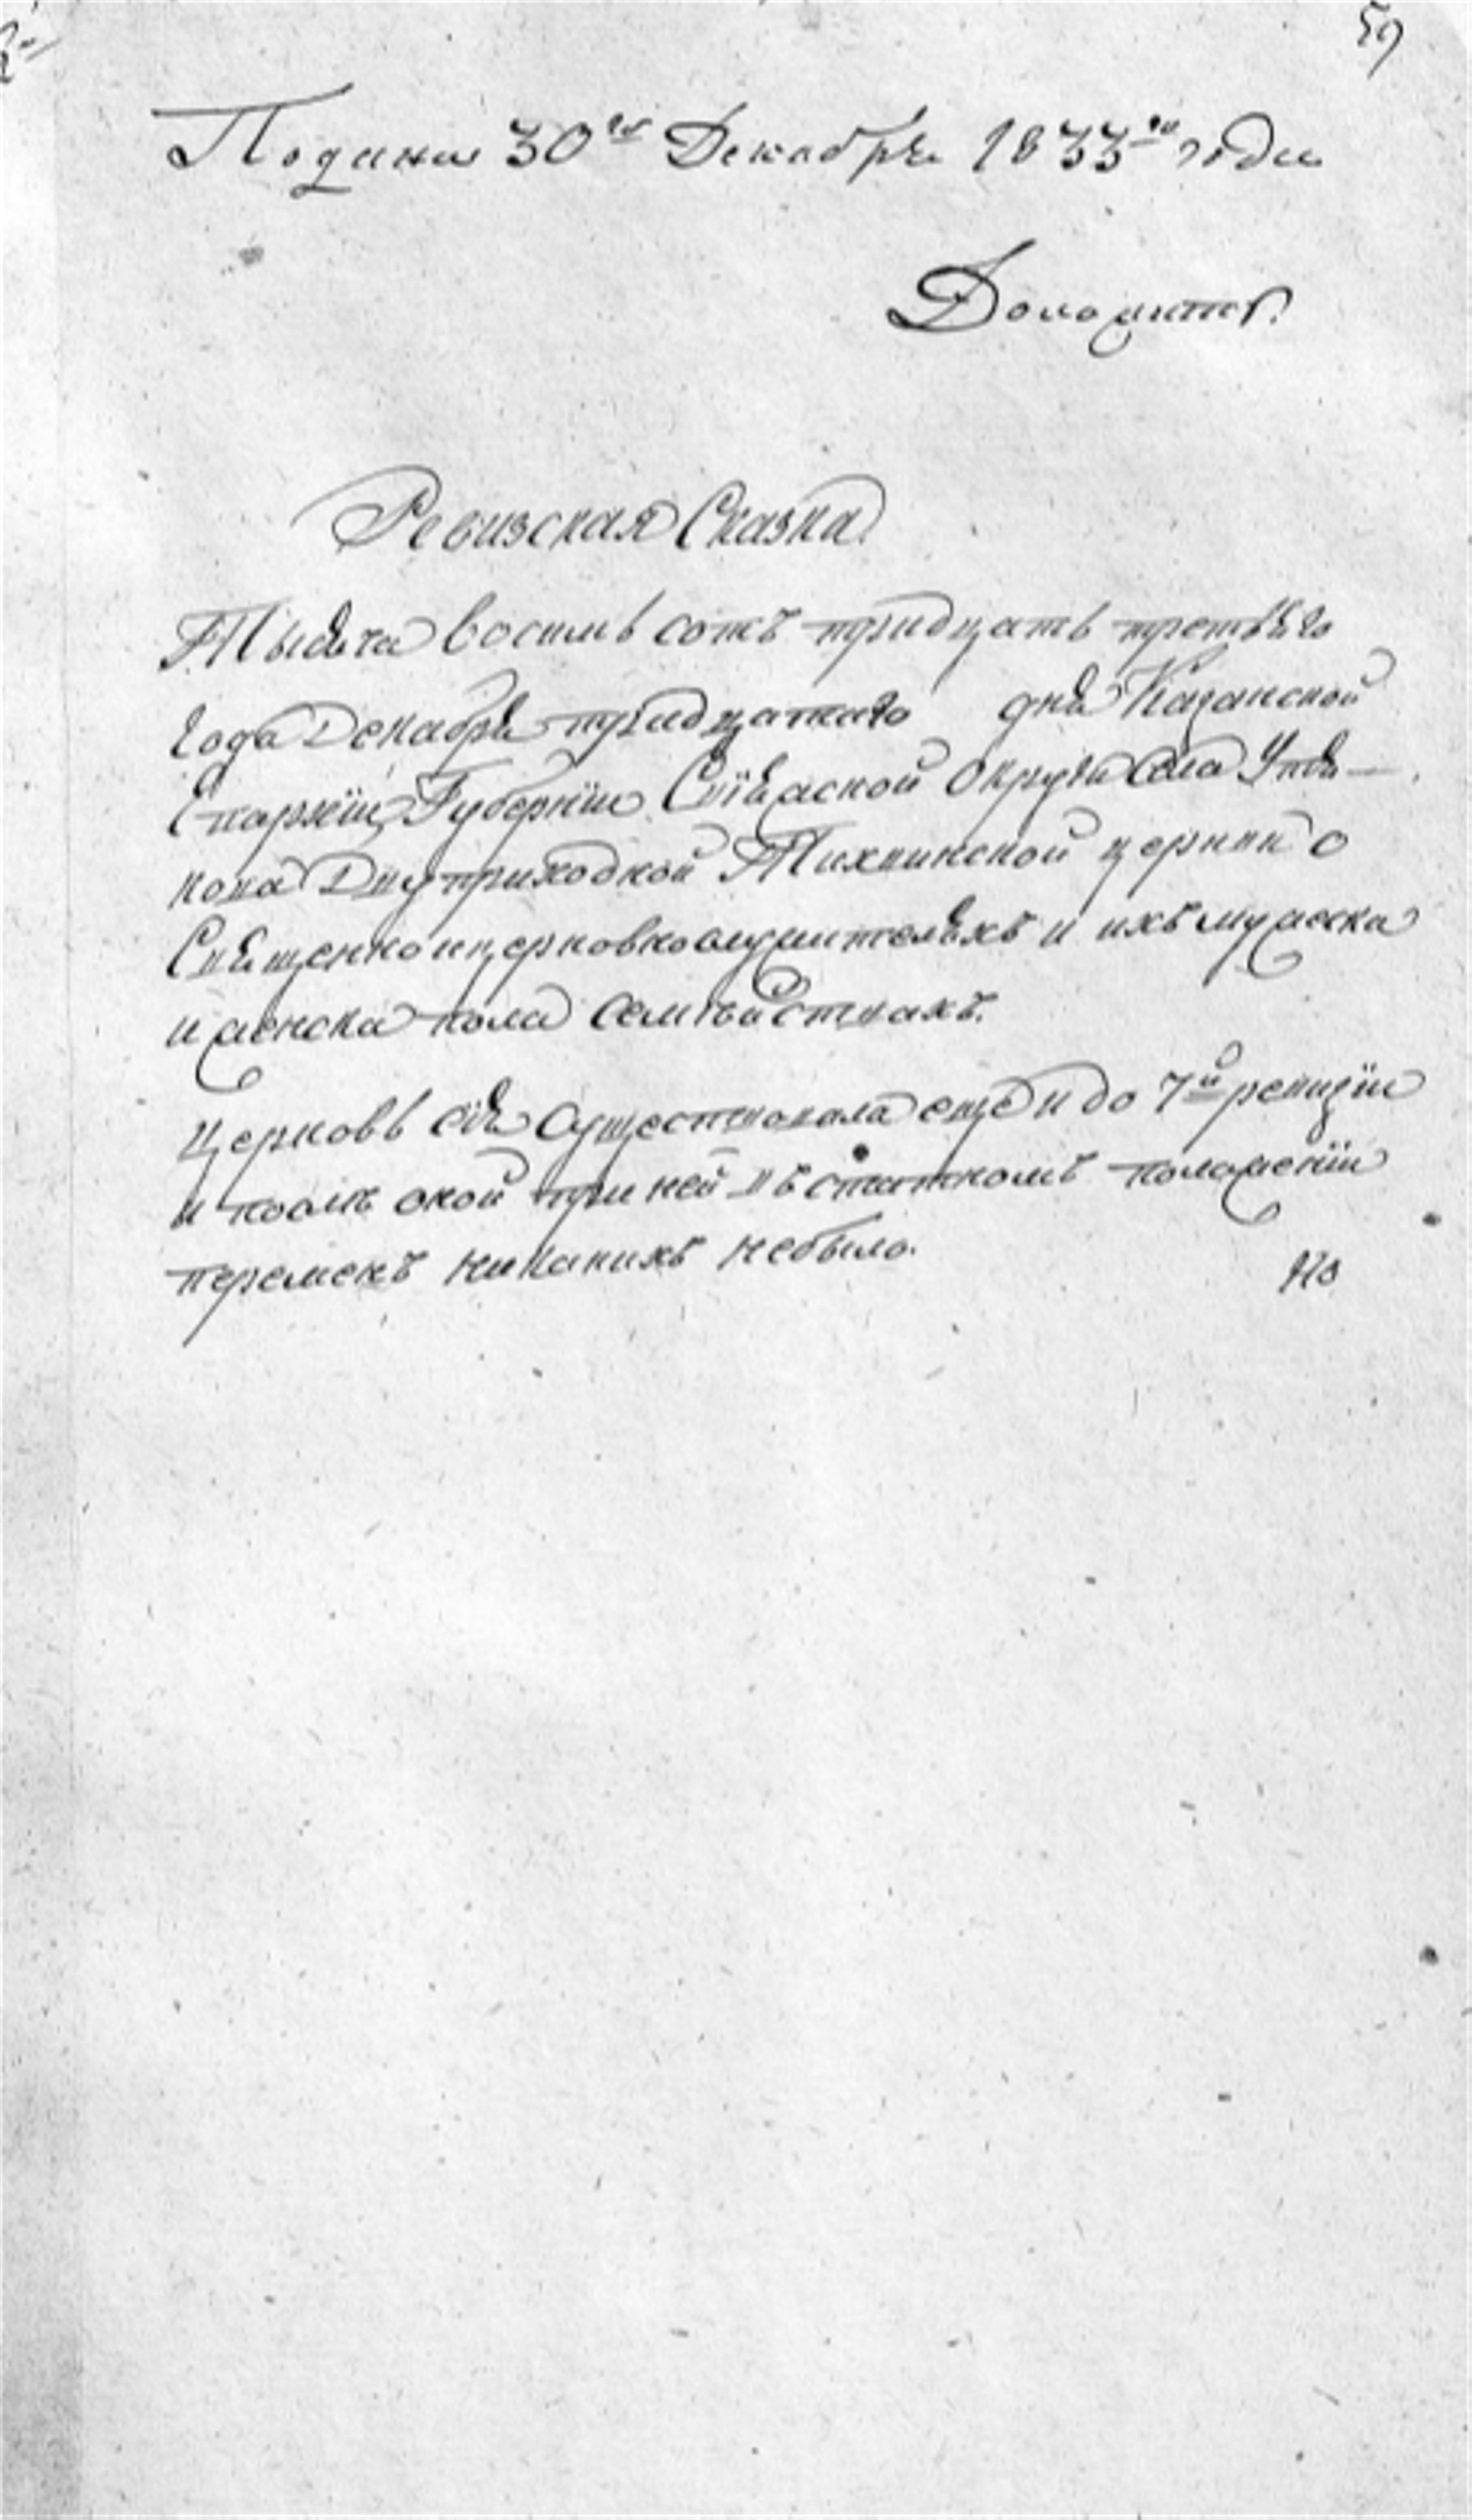 59
Подана 30го Декабря 1833го года
Доложить.
Ревизская Сказка
Тысяча восемь сотъ тридцать третьяго
года Декабря тридцатаго дня Казанской
Епархіи, Губерніи Свіяжской Округи села
Двуприходной Тихвинской церкви о
Священноицерковнослужителяхъ и ихъ мужеска
и женска пола семѣйствахъ.
Церковь сія существовала еще и до 7й ревизіи
и послѣ оной при ней въ статномъ положеніи
перемѣнъ никакихъ небыло.
На